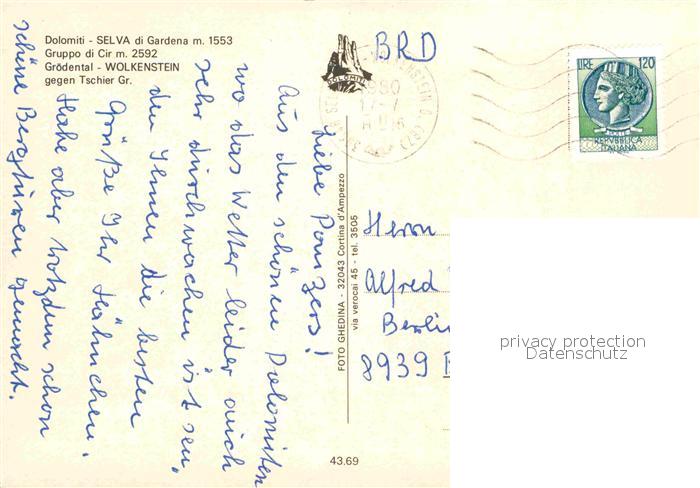 Dolomiti - SELVA di Gardena m. 1553
Gruppo di Cir m. 2592
Grödental - WOLKENSTEIN
gegen Tschier Gr.
DOLOMITI
BRD
1980
17-7
LIRE 120
REPVBBLICA
ITALIANA
Liebe Panizers!
Aus den schönen Dolomiten
wo das Wetter leider auch
sehr durchwachsen ist sen,
den Ihnen die besten
Grüße Ihr Hähnchen.
Habe aber trotzdem schon
schöne Bergtouren gemacht.
FOTO GHEDINA - 32043 Cortina d'Ampezzo
via verocai 45 - tel. 3505
Herrn
Alfred
Berlin
8939
43.69
privacy protection
Datenschutz